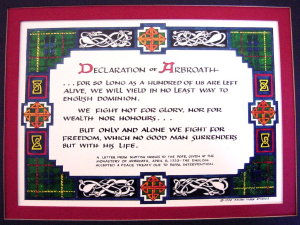 Declaration of Arbroath
...For so long as a hundred of us are left
alive, we will yield in no least way to
English dominion.
We fight not for glory, nor for
wealth nor honours...
But only and alone we fight for
freedom, which no good man surrenders
but with his life.
A letter from Scottish nobles to the Pope, given at the
monastery of Arbroath, April 6, 1320. The English
accepted a peace treaty due to papal intervention.